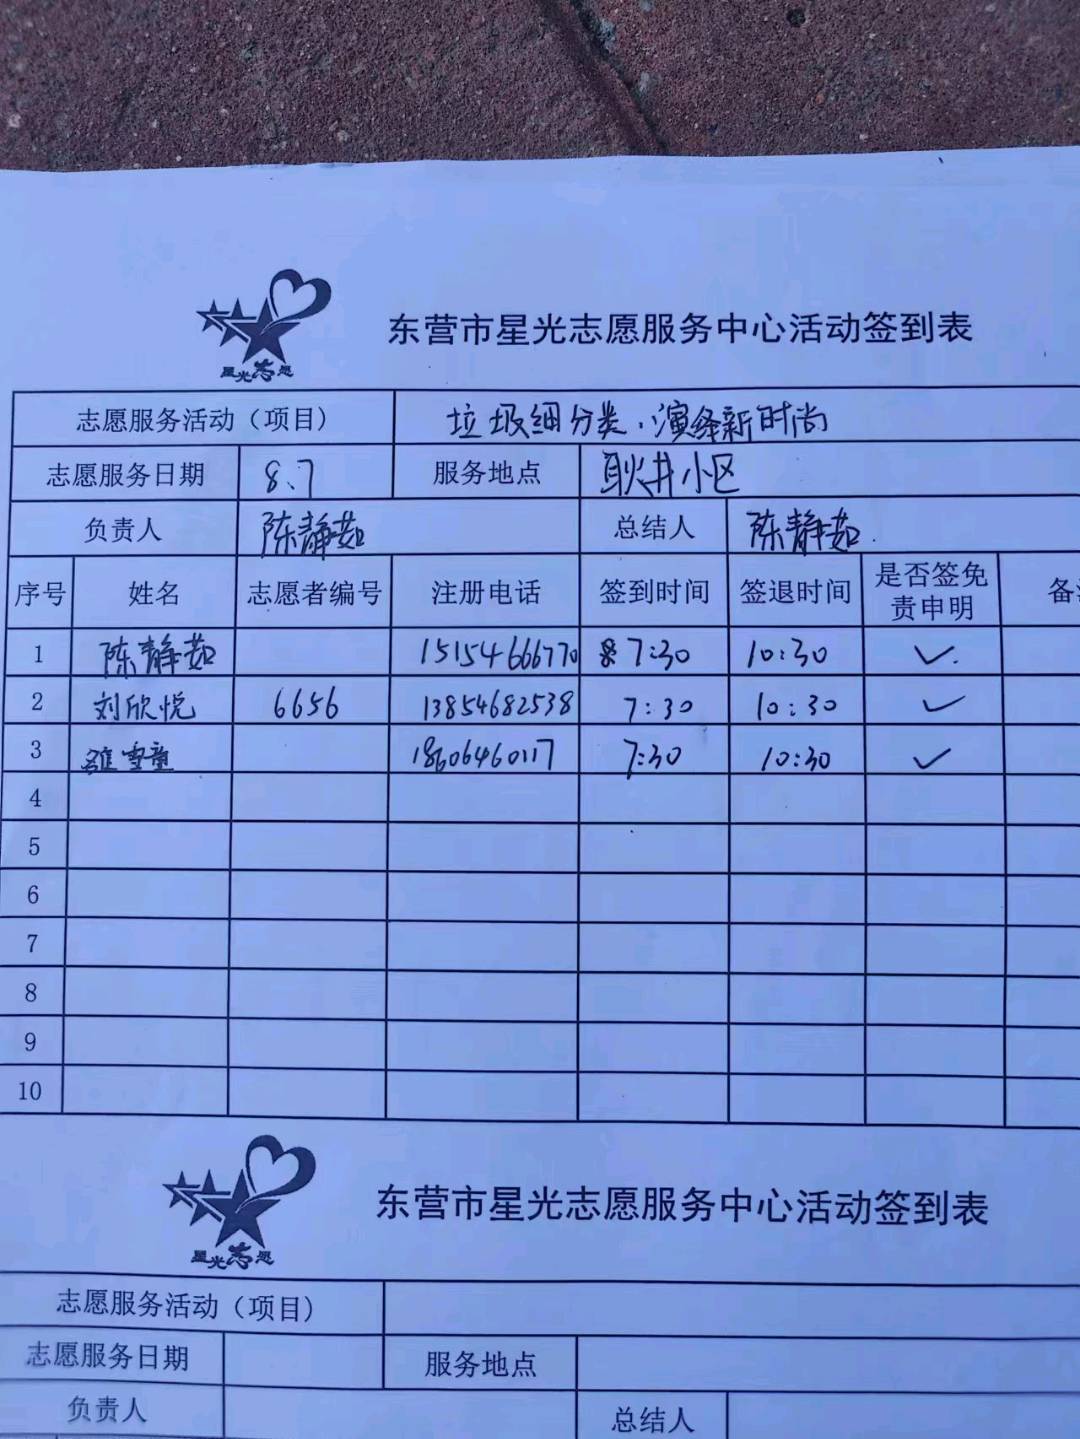 星光志愿
东营市星光志愿服务中心活动签到表
志愿服务活动（项目） 垃圾细分类，演绎新时尚
志愿服务日期 8.7 服务地点 耿井小区
负责人 陈静茹 总结人 陈静茹
序号 姓名 志愿者编号 注册电话 签到时间 签退时间 是否签免责申明 备
1 陈静茹 15154666770 7:30 10:30 ✓
2 刘欣悦 6656 13854682538 7:30 10:30 ✓
3 雪童 18606460117 7:30 10:30 ✓
4
5
6
7
8
9
10
星光志愿
东营市星光志愿服务中心活动签到表
志愿服务活动（项目）
志愿服务日期 服务地点
负责人 总结人